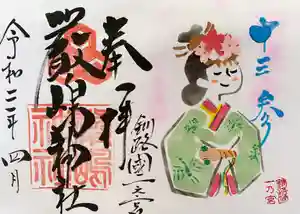 十三参り
奉拝
釧路國一之宮
厳嶋神社
令和二年 四月
釧路
一乃宮